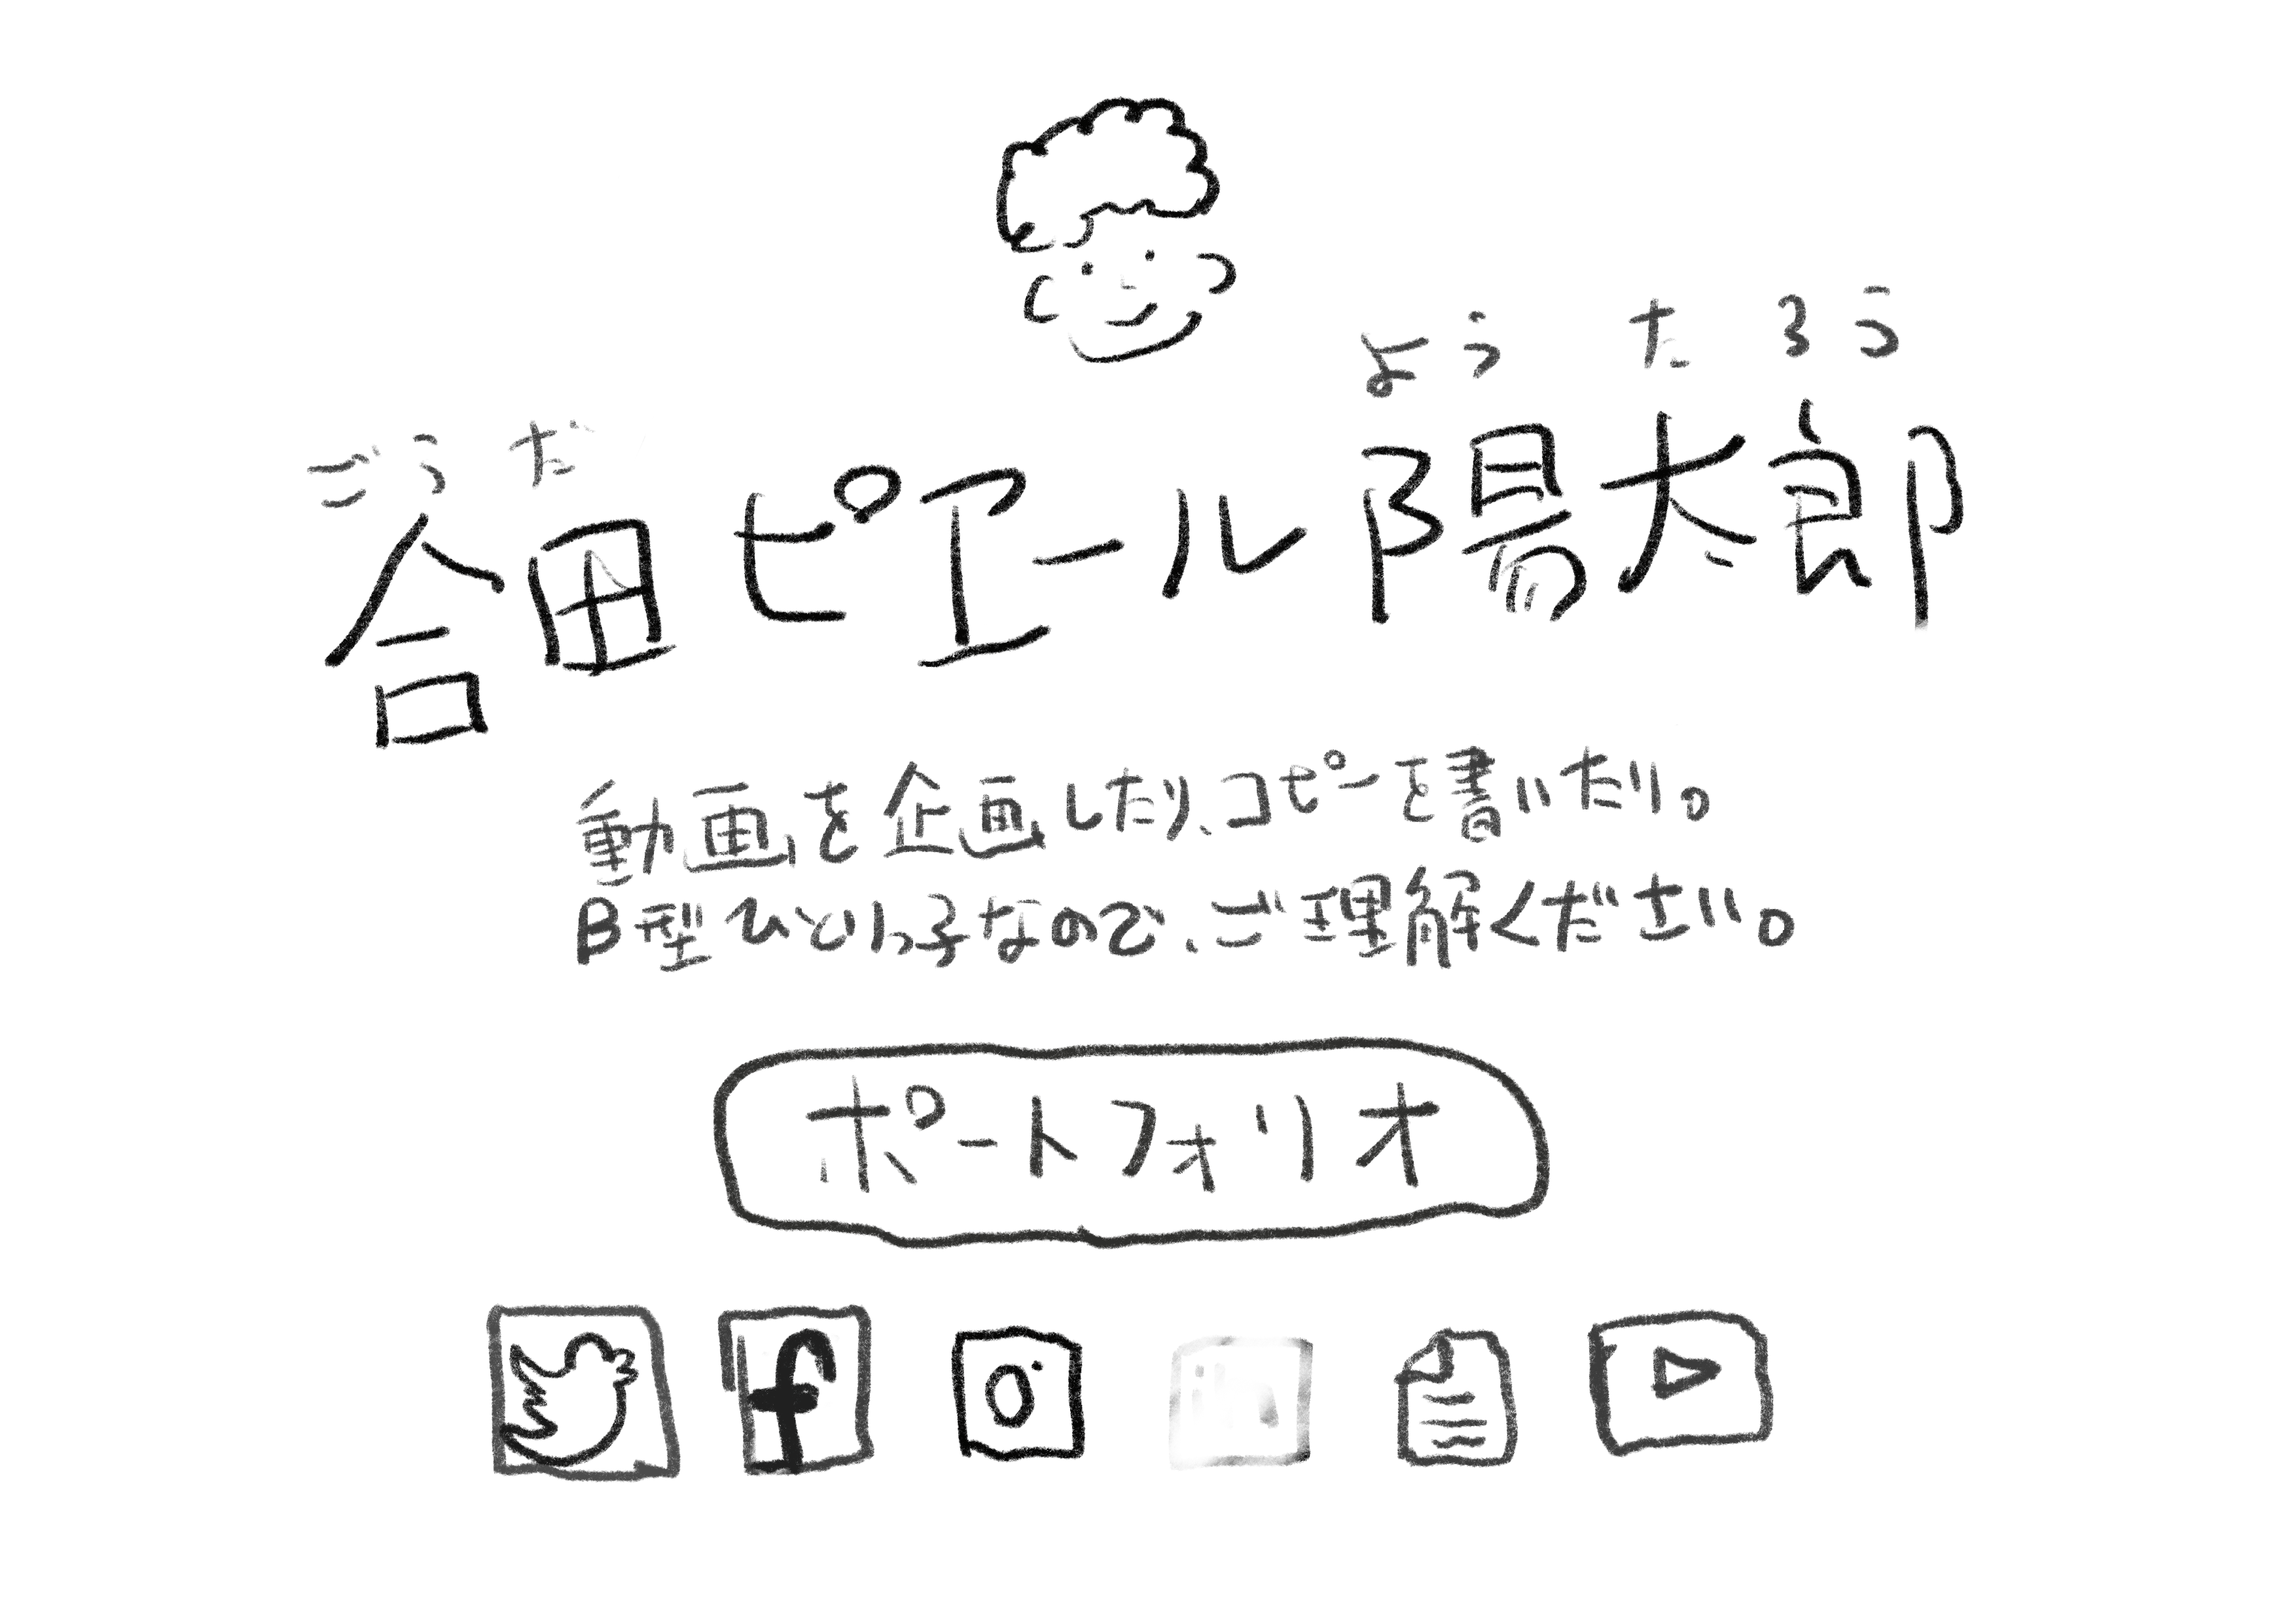 ごうだ ようたろう
合田ピエール陽太郎
動画を企画したり、コピーを書いたり。
B型ひとりっ子なので、ご理解ください。
ポートフォリオ
f in